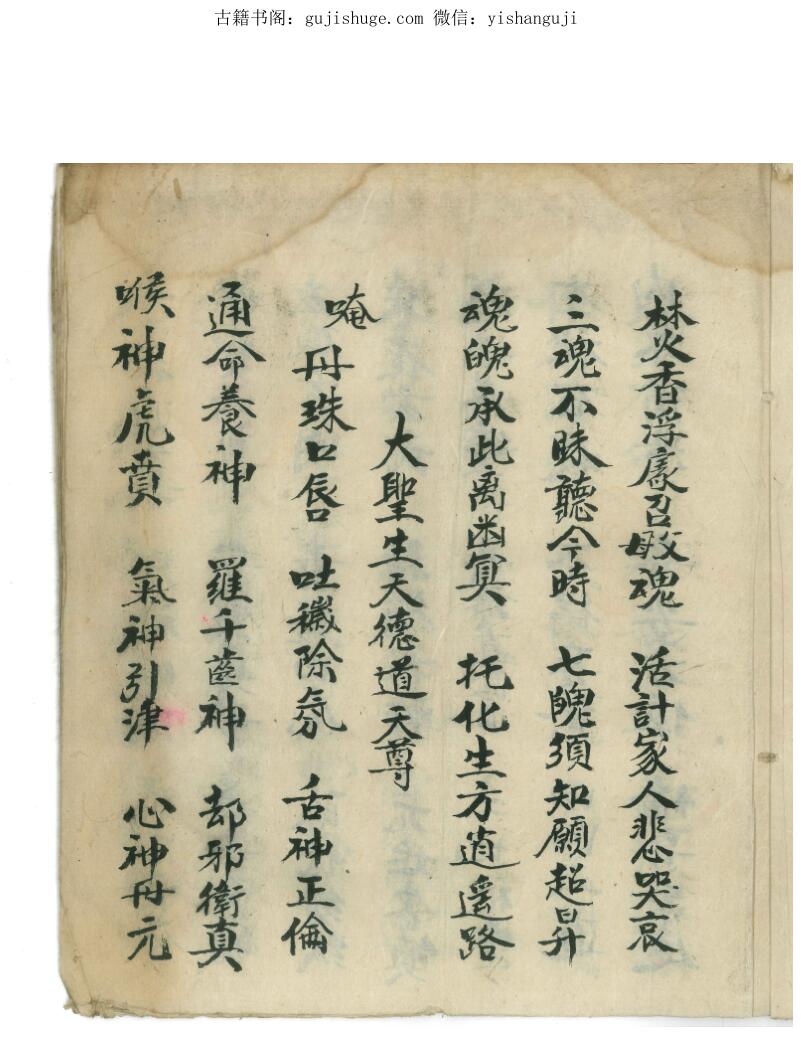 古籍书阁：gujishuge.com 微信：yishanguji
焚香浮處召敀魂 活計家人悲哭哀
三魂不昧聽今時 七魄須知願超昇
魂魄承此离幽冥 托化生方逍遥路
大聖生天德道天尊
唵
丹珠口唇 吐穢除氛 舌神正倫
通命養神 羅千齒神 却邪衛真
喉神虎賁 氣神引津 心神丹元